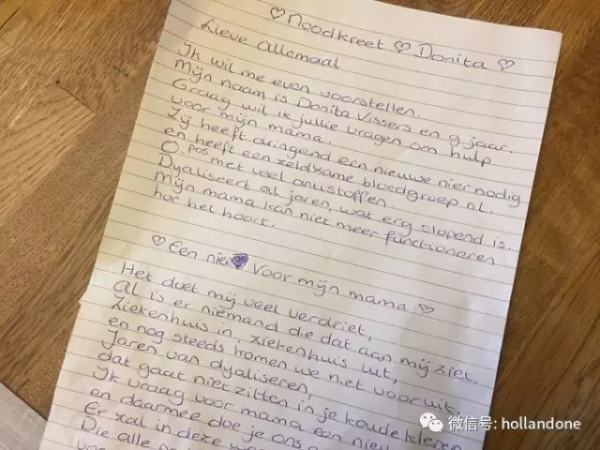 ♡ Noodkreet ♡ Donita ♡
Lieve allemaal
Ik wil me even voorstellen.
Mijn naam is Donita Vissers en 9 jaar.
Graag wil ik jullie vragen om hulp
voor mijn mama.
Zij heeft dringend een nieuwe nier nodig
en heeft een zeldzame bloedgroep nl.
O. pos met veel antistoffen.
Dyaliseert al jaren, wat erg slopend is.
Mijn mama kan niet meer functioneren
hoe het hoort.
♡ Een nier Voor mijn mama ♡
Het doet mij veel verdriet,
Al is er niemand die dat aan mij ziet.
Ziekenhuis in, ziekenhuis uit,
en nog steeds komen we niet vooruit.
Jaren van dyaliseren,
dat gaat niet zitten in je koude kleren
Ik vraag voor mama een
en daarmee doe je ons
Er zal in deze
Die alle
微信号: hollandone